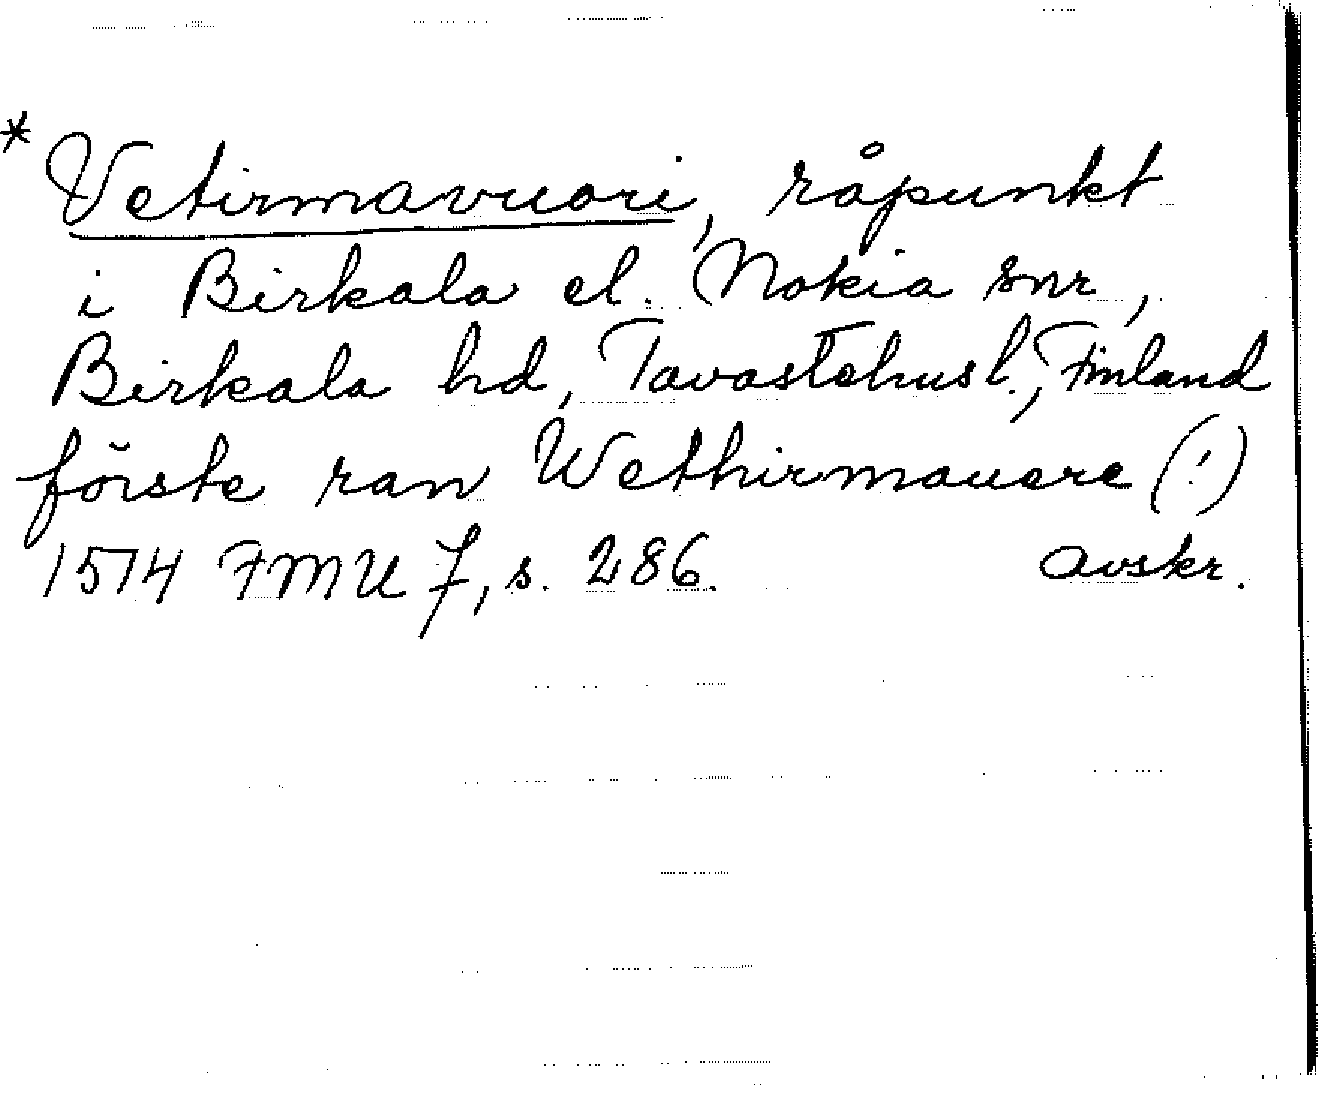 * Vetirmavuori, råpunkt
i Birkala el. Nokia snr,
Birkala hd, Tavastehusl., Finland
förste ran Wethirmauere (!)
1514 FMU 7, s. 286. avskr.